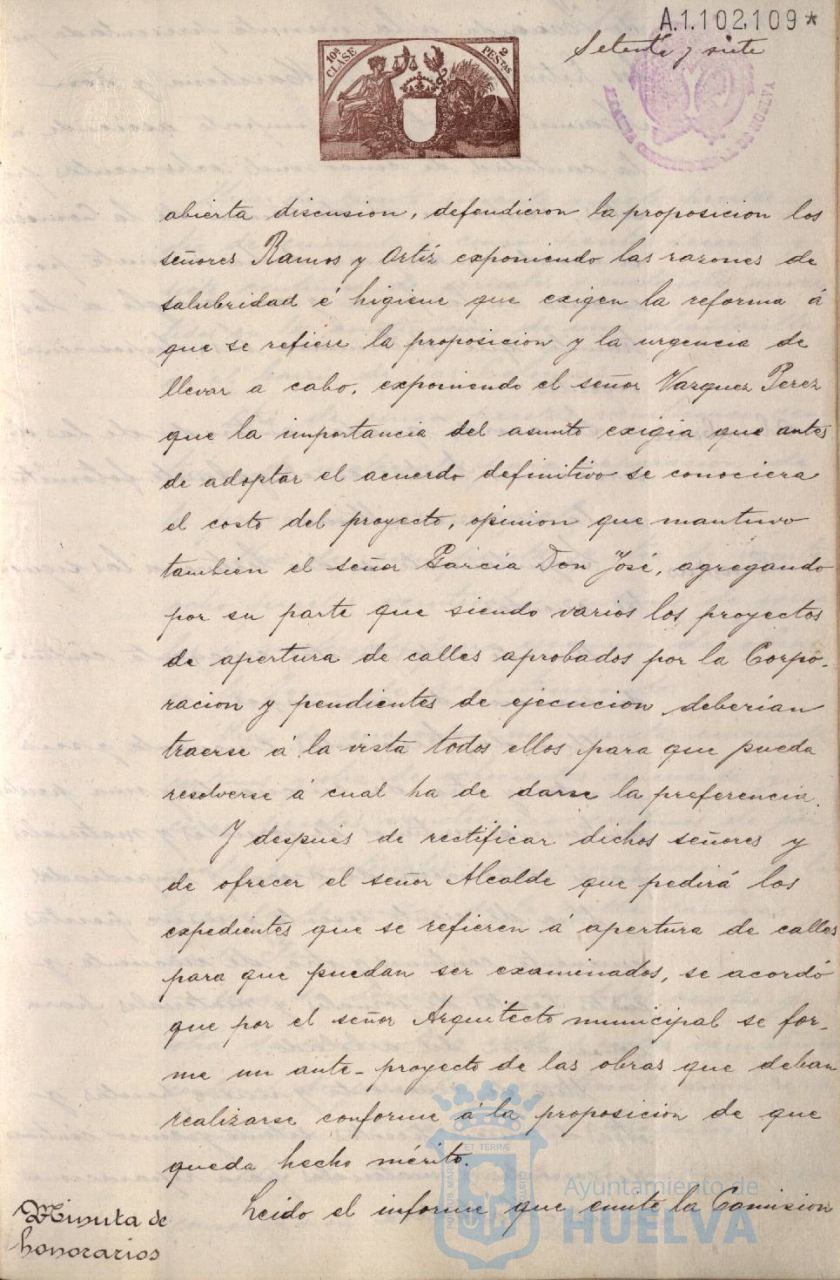 A.1.102,109*
Setenta y siete
10ª CLASE
2 PESTAS
DE HUELVA
abierta discusion, defendieron la proposicion los
señores Ramos y Ortiz exponiendo las razones de
salubridad é higiene que exigen la reforma á
que se refiere la proposicion y la urgencia de
llevar a cabo, exponiendo el señor Vazquez Perez
que la importancia del asunto exigia que antes
de adoptar el acuerdo definitivo se conociera
el costo del proyecto, opinion que mantuvo
tambien el señor Garcia Don José, agregando
por su parte que siendo varios los proyectos
de apertura de calles aprobados por la Corpo-
racion y pendientes de ejecucion deberian
traerse á la vista todos ellos para que pueda
resolverse á cual ha de darse la preferencia.
Y después de rectificar dichos señores y
de ofrecer el señor Alcalde que pedirá los
expedientes que se refieren á apertura de calles
para que puedan ser examinados, se acordó
que por el señor Arquitecto municipal se for-
me un ante-proyecto de las obras que deban
realizarse conforme á la proposicion de que
queda hecho mérito.
Minuta de
honorarios
Leido el informe que emite la Comision
Ayuntamiento de
HUELVA